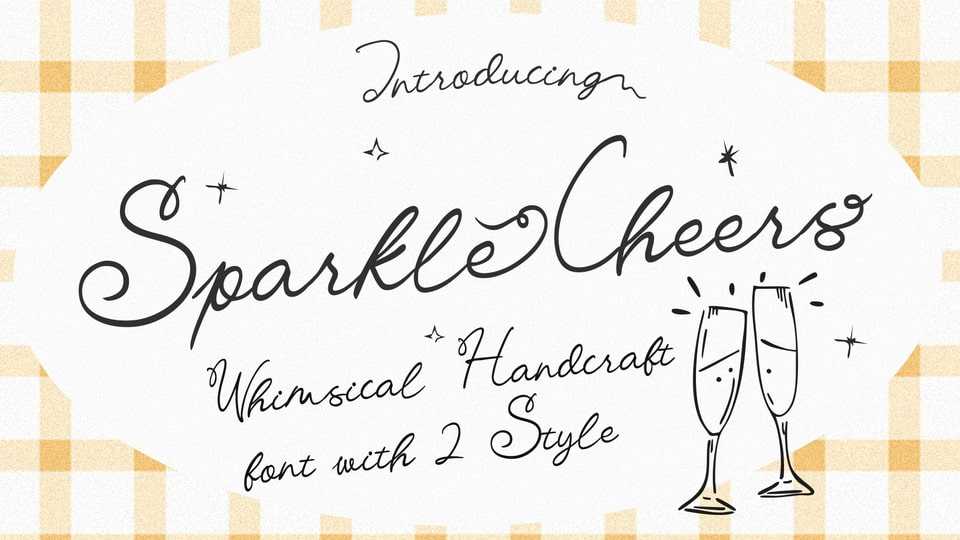 Introducing
Sparkle Cheers
Whimsical Handcraft
font with 2 Style